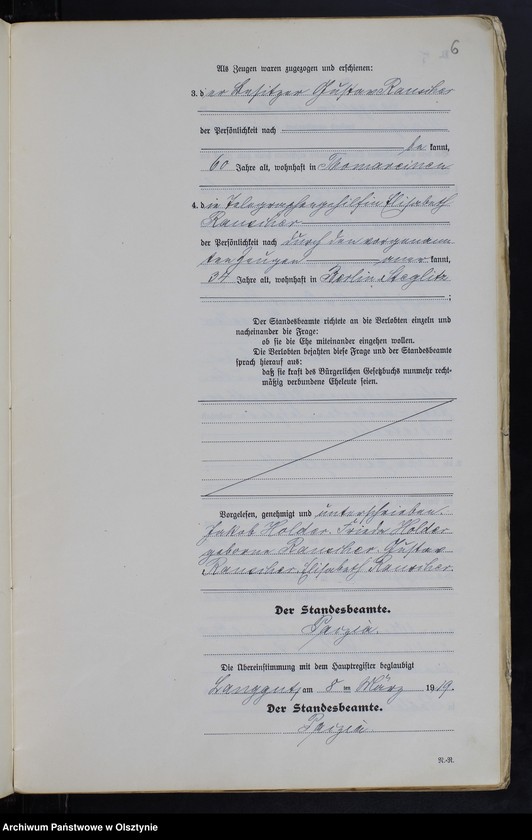 6
Als Zeugen waren zugezogen und erschienen:
3. der Besitzer Gustav Rauscher
der Persönlichkeit nach
be kannt,
60 Jahre alt, wohnhaft in Thomareinen
4. die Telegraphengehilfin Elisabeth
Rauscher
der Persönlichkeit nach durch den vorgenann
ten Zeugen aner kannt,
Jahre alt, wohnhaft in Berlin Steglitz
;
Der Standesbeamte richtete an die Verlobten einzeln und
nacheinander die Frage:
ob sie die Ehe miteinander eingehen wollen.
Die Verlobten bejahten diese Frage und der Standesbeamte
sprach hierauf aus:
daß sie kraft des Bürgerlichen Gesetzbuchs nunmehr recht-
mäßig verbundene Eheleute seien.
Vorgelesen, genehmigt und unterschrieben.
Jakob Holder. Frieda Holder
geborene Rauscher. Gustav
Rauscher. Elisabeth Rauscher.
Der Standesbeamte.
Die Übereinstimmung mit dem Hauptregister beglaubigt
Langgut, am 8 ten März 1919.
Der Standesbeamte.
N.-R.
Archiwum Państwowe w Olsztynie